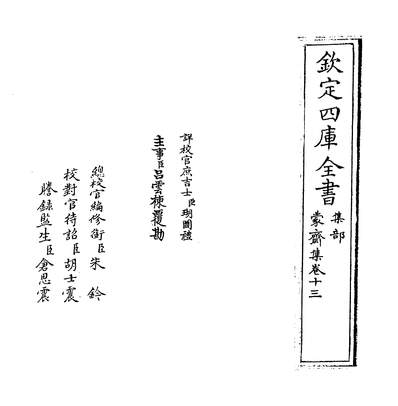 欽定四庫全書
集部
蒙齋集卷十三
詳校官庶吉士臣瑚圖禮
主事臣呂雲棟覆勘
總校官編修銜臣朱鈐
校對官待詔臣胡士震
謄錄監生臣倉思震